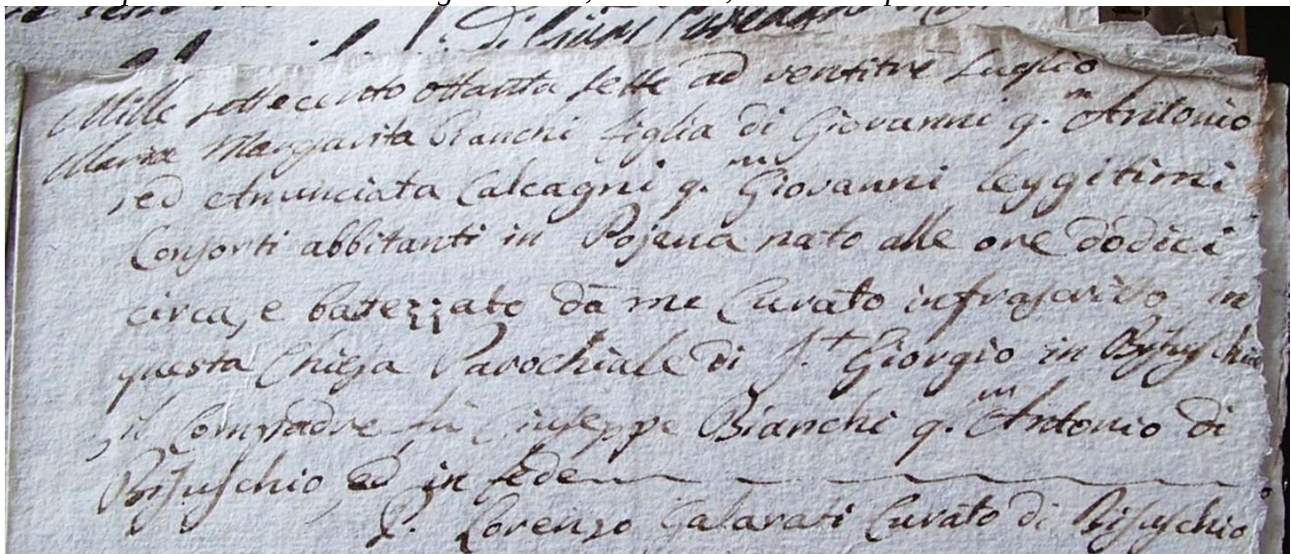 di
Mille settecento ottanta sette ad ventitre Luglio
Maria Margarita Bianchi figlia di Giovanni q.m Antonio
ed Anunciata Calcagni q.m Giovanni leggitimi
Consorti abbitanti in Pojana nato alle ore dodici
circa, e batezzato da me Curato infrascritto in
questa Chiesa Parochiale di S.t Giorgio in Bisuschio
il Compadre fù Giuseppe Bianchi q.m Antonio di
Bisuschio, ed in fede
P. Lorenzo Galarati Curato di Bisuschio